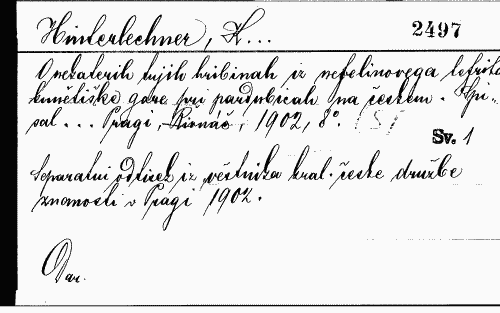 Hinterlechner, K...
2497
O nekaterih tujih hribinah iz nefelinovega tefrita
kunětiške gore pri pardubicah na českem. Spi-
sal... Pragi, Rivnáč, 1902, 8°. (S)
Sv. 1
Separatni odtisek iz věstnika kral. česke družbe
znanosti v Pragi 1902.
Dar.